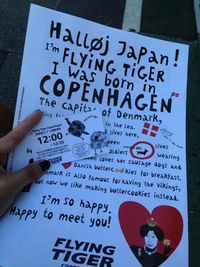 Halløj Japan!
I'm FLYING TIGER
I was born in
COPENHAGEN
The capital of Denmark,
tiny
in the sea.
lives here,
12:00
gives
soldiers wearing
loves her sausage dogs and
Danish butter cookies for breakfast.
Denmark is also famous for having the Vikings,
but now we like making buttercookies instead.
I'm SO happy,
Happy to meet you!
FLYING
TIGER